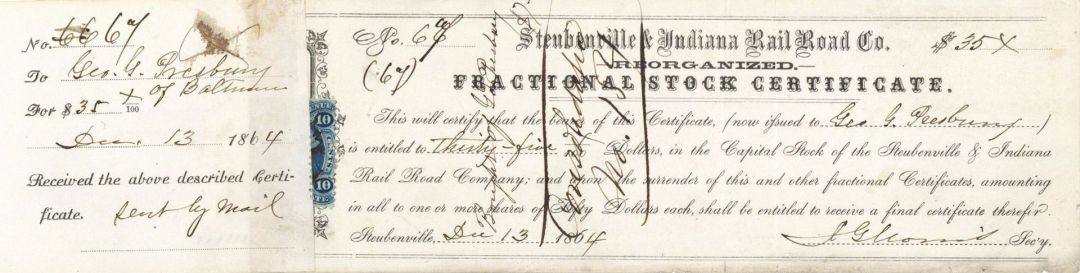 No. 66 67
To Geo. G. Presbury
of Baltimore
For $ 35 x/100
Dec. 13 1864
Received the above described Certi-
ficate. Sent by Mail
10
10
No. 66
(67)
Steubenville & Indiana Rail Road Co. $ 35 x
REORGANIZED.
FRACTIONAL STOCK CERTIFICATE.
This will certify that the bearer of this Certificate, (now issued to Geo. G. Presbury)
is entitled to Thirty-five Dollars, in the Capital Stock of the Steubenville & Indiana
Rail Road Company; and upon the surrender of this and other fractional Certificates, amounting
in all to one or more shares of Fifty Dollars each, shall be entitled to receive a final certificate therefor.
Steubenville, Dec 13 1864 Sec'y.